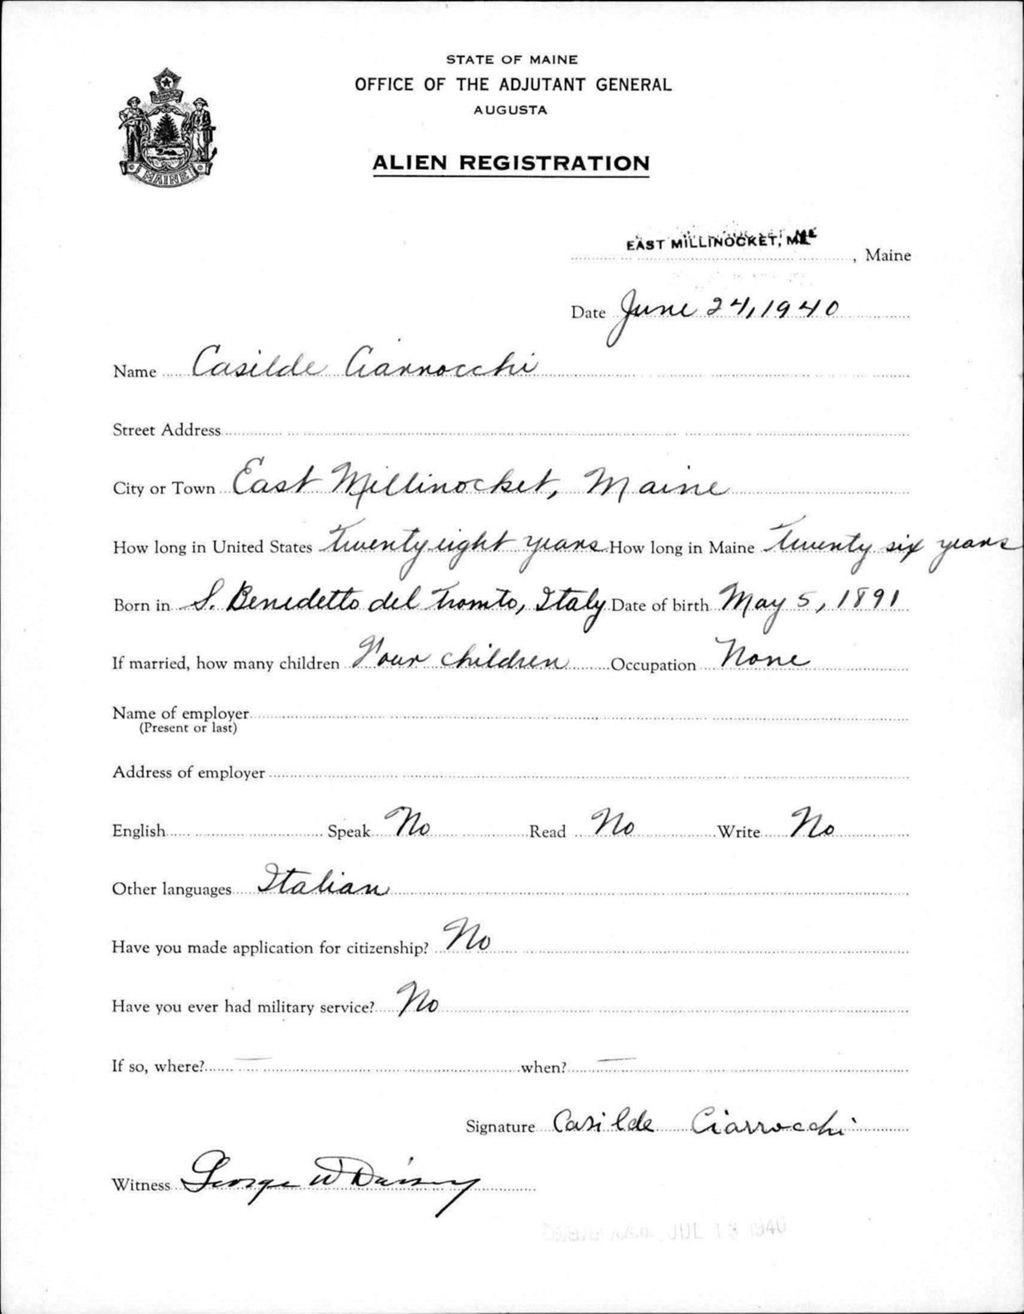 STATE OF MAINE
OFFICE OF THE ADJUTANT GENERAL
AUGUSTA
ALIEN REGISTRATION
MAINE
EAST MILLINOCKET, ME
, Maine
Date June 24, 1940
Name Casilde Ciarrocchi
Street Address
City or Town East Millinocket, Maine
How long in United States Twenty eight years How long in Maine Twenty six years
Born in S. Benedetto del Tromto, Italy Date of birth May 5, 1891
If married, how many children Four children Occupation None
Name of employer
(Present or last)
Address of employer
English Speak No Read No Write No
Other languages Italian
Have you made application for citizenship? No
Have you ever had military service? No
If so, where? — when? —
Signature Casilde Ciarrocchi
Witness George W
JUL 13 1940